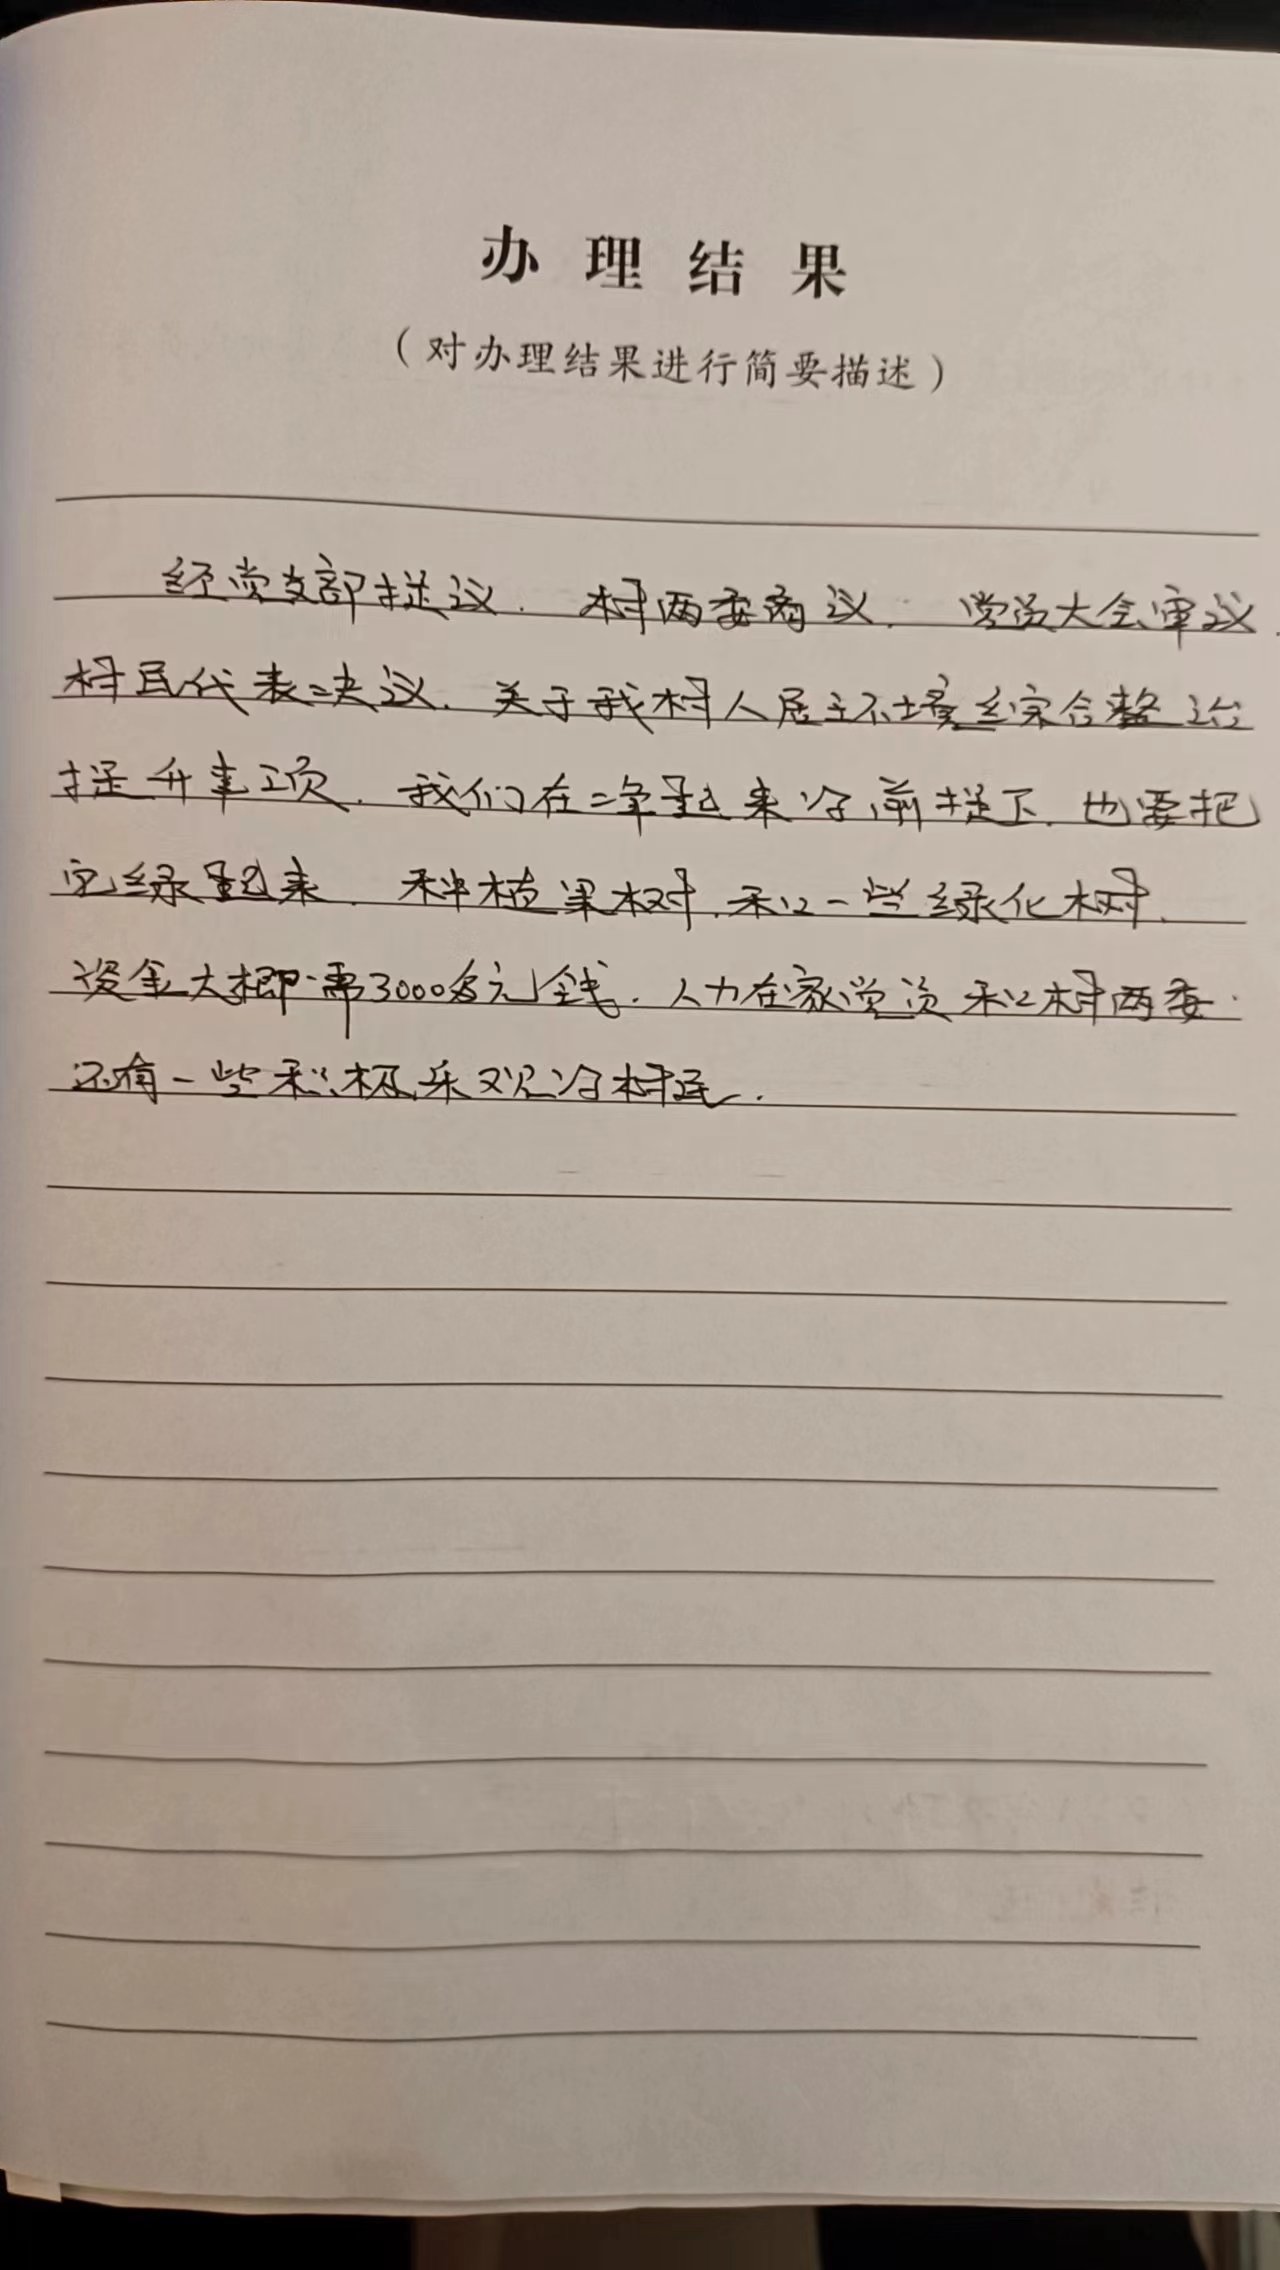 办理结果
（对办理结果进行简要描述）
经党支部提议．村两委商议．党员大会审议．
村民代表决议．关于我村人居环境综合整治
提升事项．我们在净起来的前提下．也要把
它绿起来．种植果树．和一些绿化树．
资金大概需3000多元钱．人力在家党员和村两委．
还有一些积极乐观的村民．